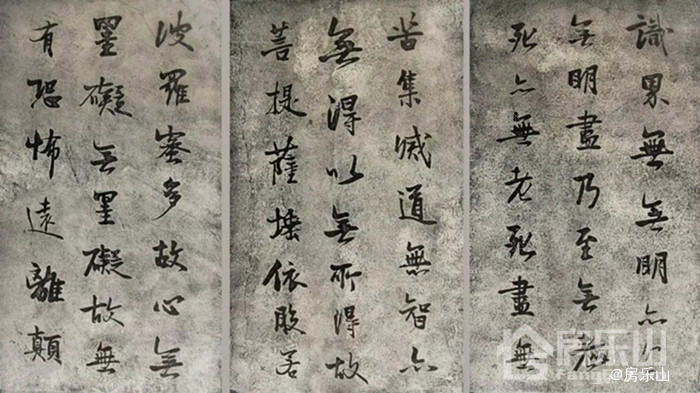 識界無無明亦無
無明盡乃至無老
死亦無老死盡無
苦集滅道無智亦
無得以無所得故
菩提薩埵依般若
波羅蜜多故心無
罣礙無罣礙故無
有恐怖遠離顛
房乐山
@房乐山